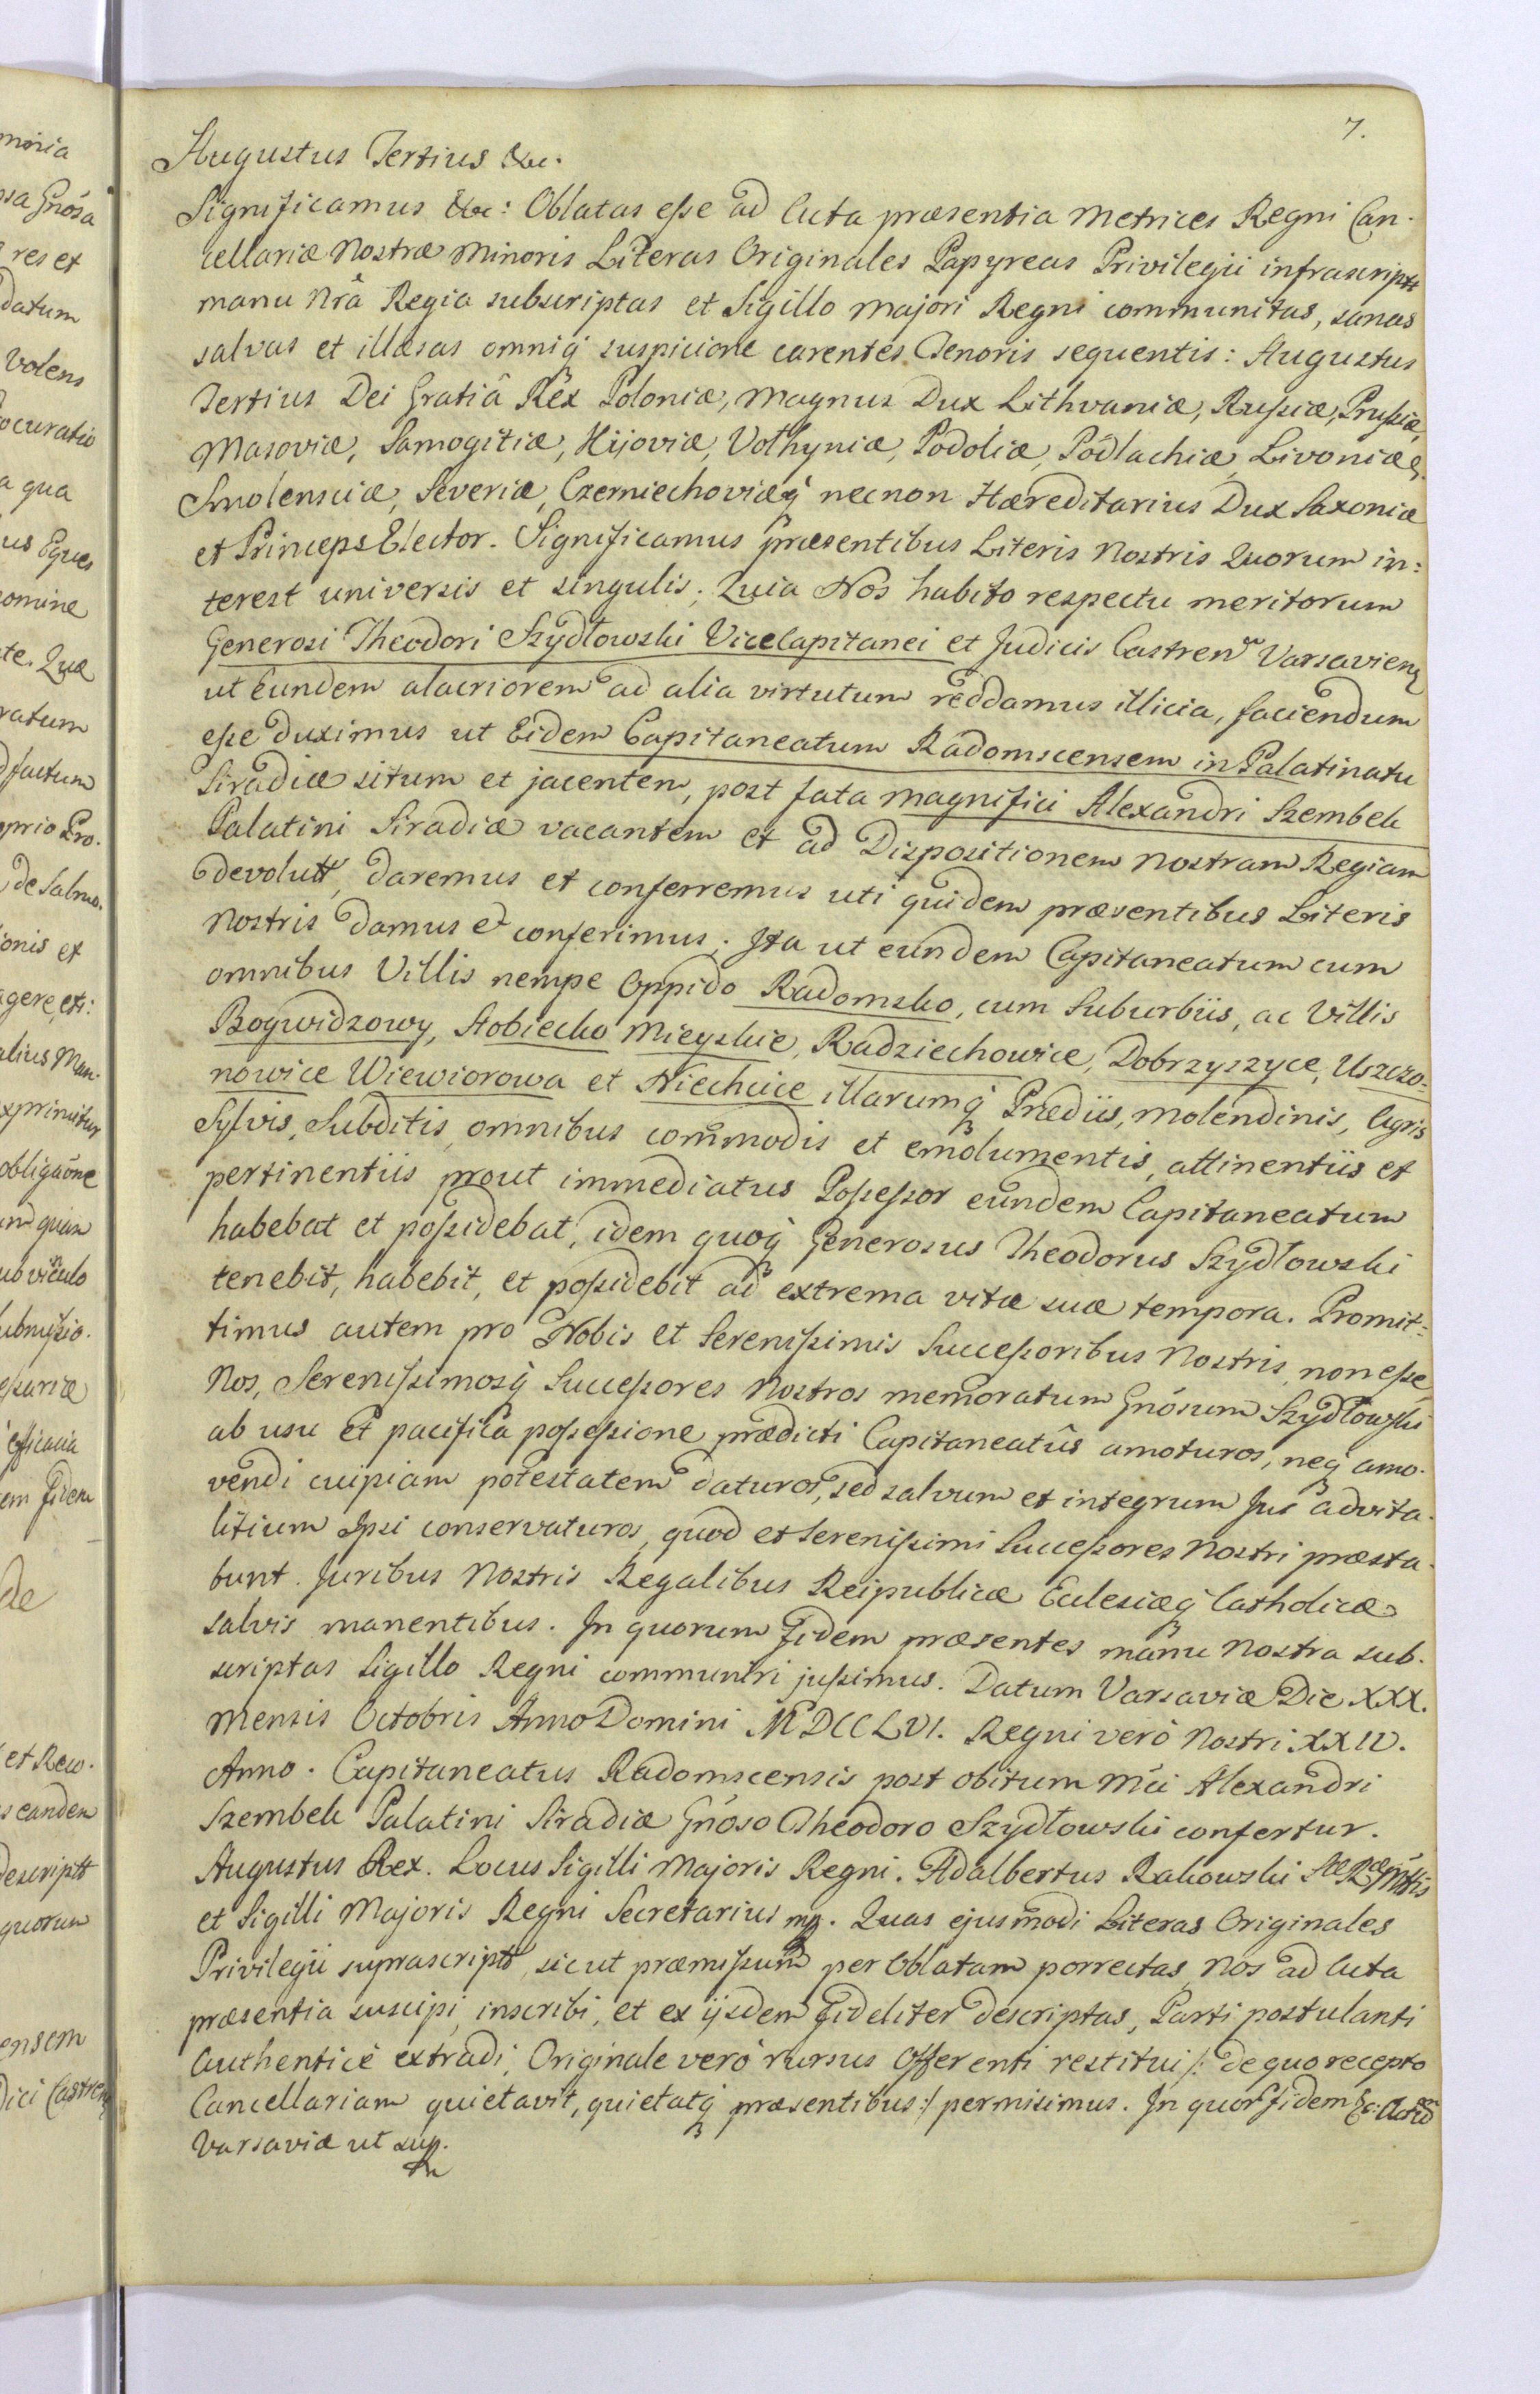 7.
Augustus Tertius &c.
Significamus &c: Oblatas esse ad Acta præsentia Metrices Regni Can-
cellariæ Nostræ Minoris Literas Originales Papyreas Privilegii infrascriptt
manu Nrâ Regia subscriptas et Sigillo Majori Regni communitas, sanas
salvas et illæsas omniq̃ suspicione carentes Tenoris sequentis: Augustus
Tertius Dei Gratiâ Rex Poloniæ, Magnus Dux Lithvaniæ, Russiæ, Prussiæ,
Masoviæ, Samogitiæ, Kijoviæ, Volhyniæ, Podoliæ, Podlachiæ, Livoniæ,
Smolensciæ, Severiæ, Czerniechoviæq̃ necnon Hæreditarius Dux Saxoniæ
et Princeps Elector. Significamus præsentibus Literis Nostris Quorum in:
terest universis et singulis. Quia Nos habito respectu meritorum
Generosi Theodori Szydłowski ViceCapitanei et Judicis Castren̄ Varsavien
ut Eundem alacriorem ad alia virtutum reddamus illicia, faciendum
esse duximus ut Eidem Capitaneatum Radomscensem in Palatinatu
Siradiæ situm et jacentem, post fata Magnifici Alexandri Szembek
Palatini Siradiæ vacantem et ad Dispositionem Nostram Regiam
devolutt, daremus et conferremus uti quidem præsentibus Literis
Nostris damus et conferimus. Ita ut eundem Capitaneatum cum
omnibus Villis nempe Oppido Radomsko, cum Suburbiis, ac Villis
Bogwidzowy, Stobiecko Mieyskie, Radziechowice, Dobrzyszyce, Uszczo=
nowice Wiewiorowa et Niechcice illarumq̃ Prædiis, Molendinis, Agris
Sylvis, Subditis, omnibus commodis et emolumentis, attinentiis et
pertinentiis prout immediatus Possessor eundem Capitaneatum
habebat et possidebat, idem quoq̃ Generosus Theodorus Szydłowski
tenebit, habebit, et possidebit ad extrema vitæ suæ tempora. Promit=
timus autem pro Nobis et Serenissimis Successoribus Nostris, non esse
Nos, Serenissimosq̃ Successores Nostros memoratum Gnôsum Szydłowski
ab usu et pacificâ possessione prædicti Capitaneatûs amoturos, neq̃ amo-
vendi cuipiam potestatem daturos, sed salvum et integrum Jus advita-
litium Ipsi conservaturos, quod et Serenissimi Successores Nostri præsta-
bunt. Juribus Nostris Regalibus Reipublicæ Eclesiæq̃ Catholicæ
salvis manentibus. In quorum fidem præsentes manu Nostra sub-
scriptas Sigillo Regni communiri jussimus. Datum Varsaviæ Die XXX.
Mensis Octobris Anno Domini MDCCLVI. Regni verò Nostri XXIV.
Anno. Capitaneatus Radomscensis post obitum Mci Alexandri
Szembek Palatini Siradiæ Gnôso Theodoro Szydłowski confertur.
Augustus Rex. Locus Sigilli Majoris Regni. Adalbertus Rakowski Sæ Ræ Mttis
et Sigilli Majoris Regni Secretarius mp. Quas ejusmodi Literas Originales
Privilegii suprascriptt, sicut præmissum per Oblatam porrectas, Nos ad Acta
præsentia suscipi, inscribi, et ex ijsdem fideliter descriptas, Parti postulanti
Authenticè extradi, Originale verò rursus Offerenti restitui /: de quo recepto
Cancellariam quietavit, quietatq̃ præsentibus :/ permisimus. In quor̃ fidem &c. Actũ
Varsaviæ ut sup.